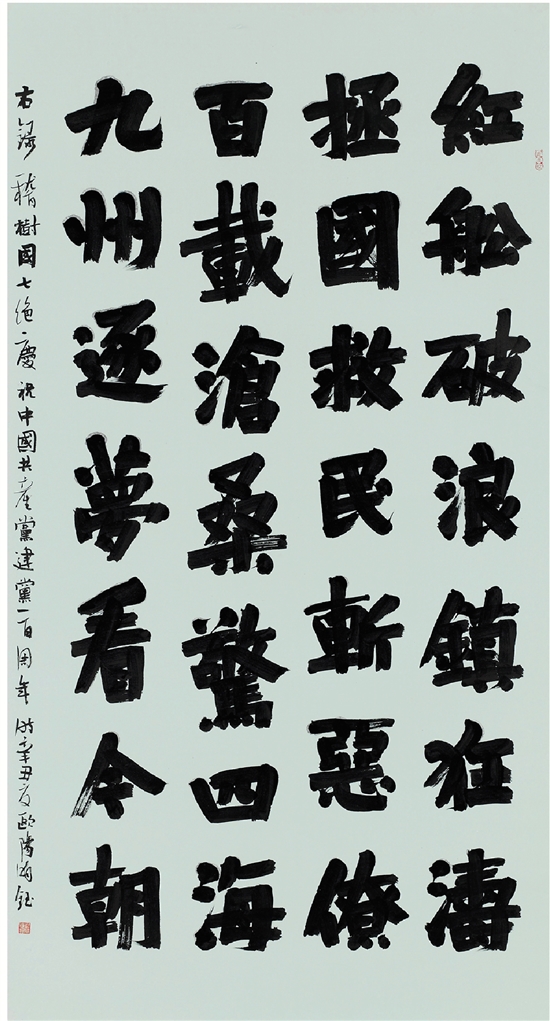 紅船破浪鎮狂濤
拯國救民斬惡僚
百載滄桑驚四海
九州逐夢看今朝
右錄稽樹國七絕一慶祝中國共產黨建黨一百周年 時辛丑夏歐陽